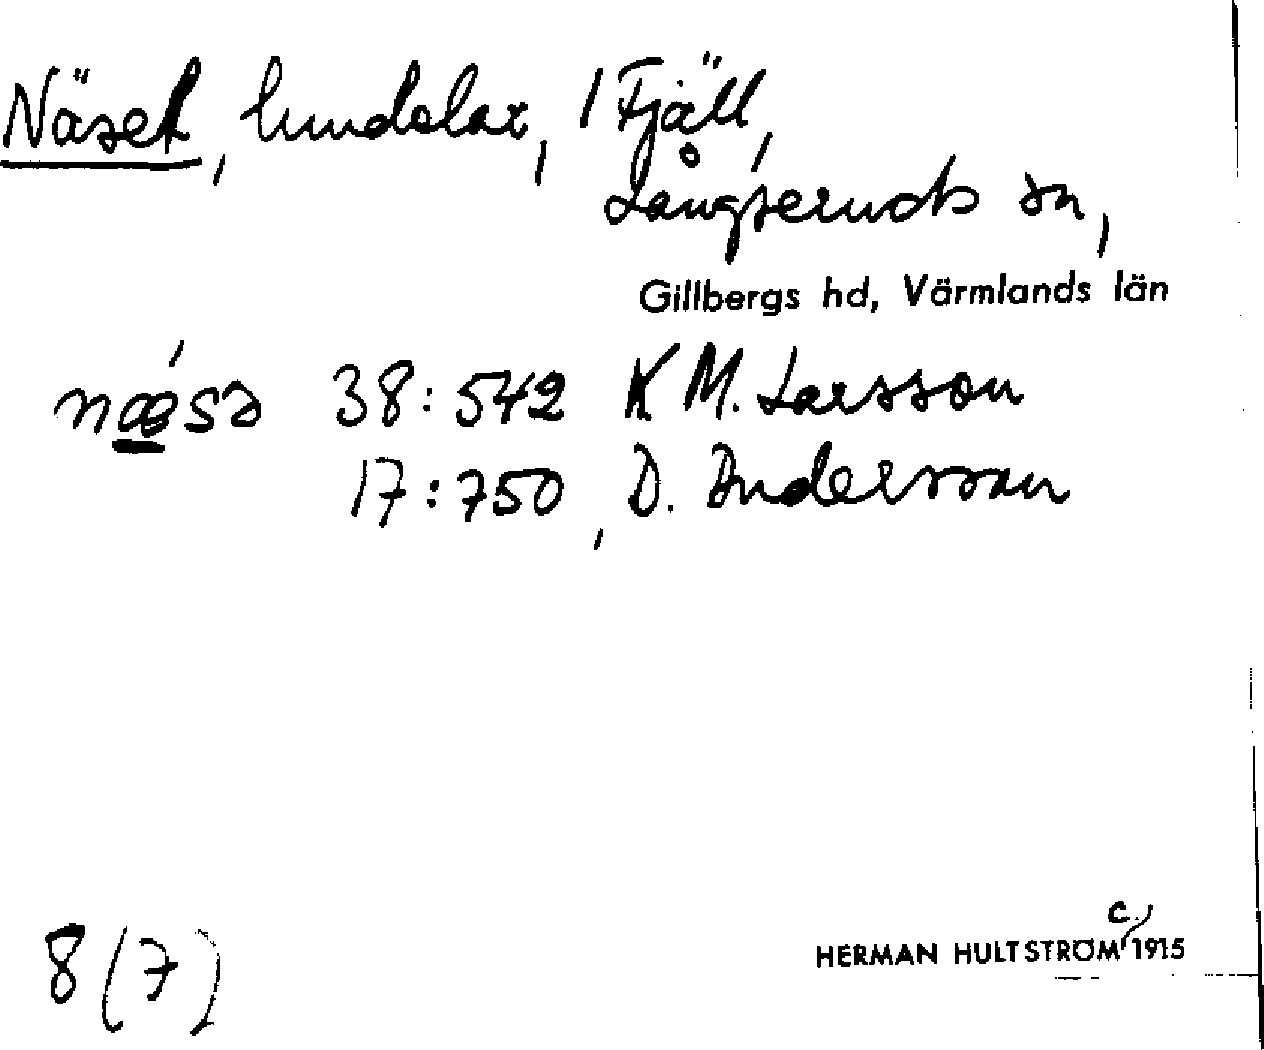 Näset, lundelar, 1 Fjäll,
Långseruds sn,
Gillbergs hd, Värmlands län
nǽ̲sə 38:542 K M. Larsson
17:750, D. Andersson
8 (7)
c.
HERMAN HULTSTRÖM 1915